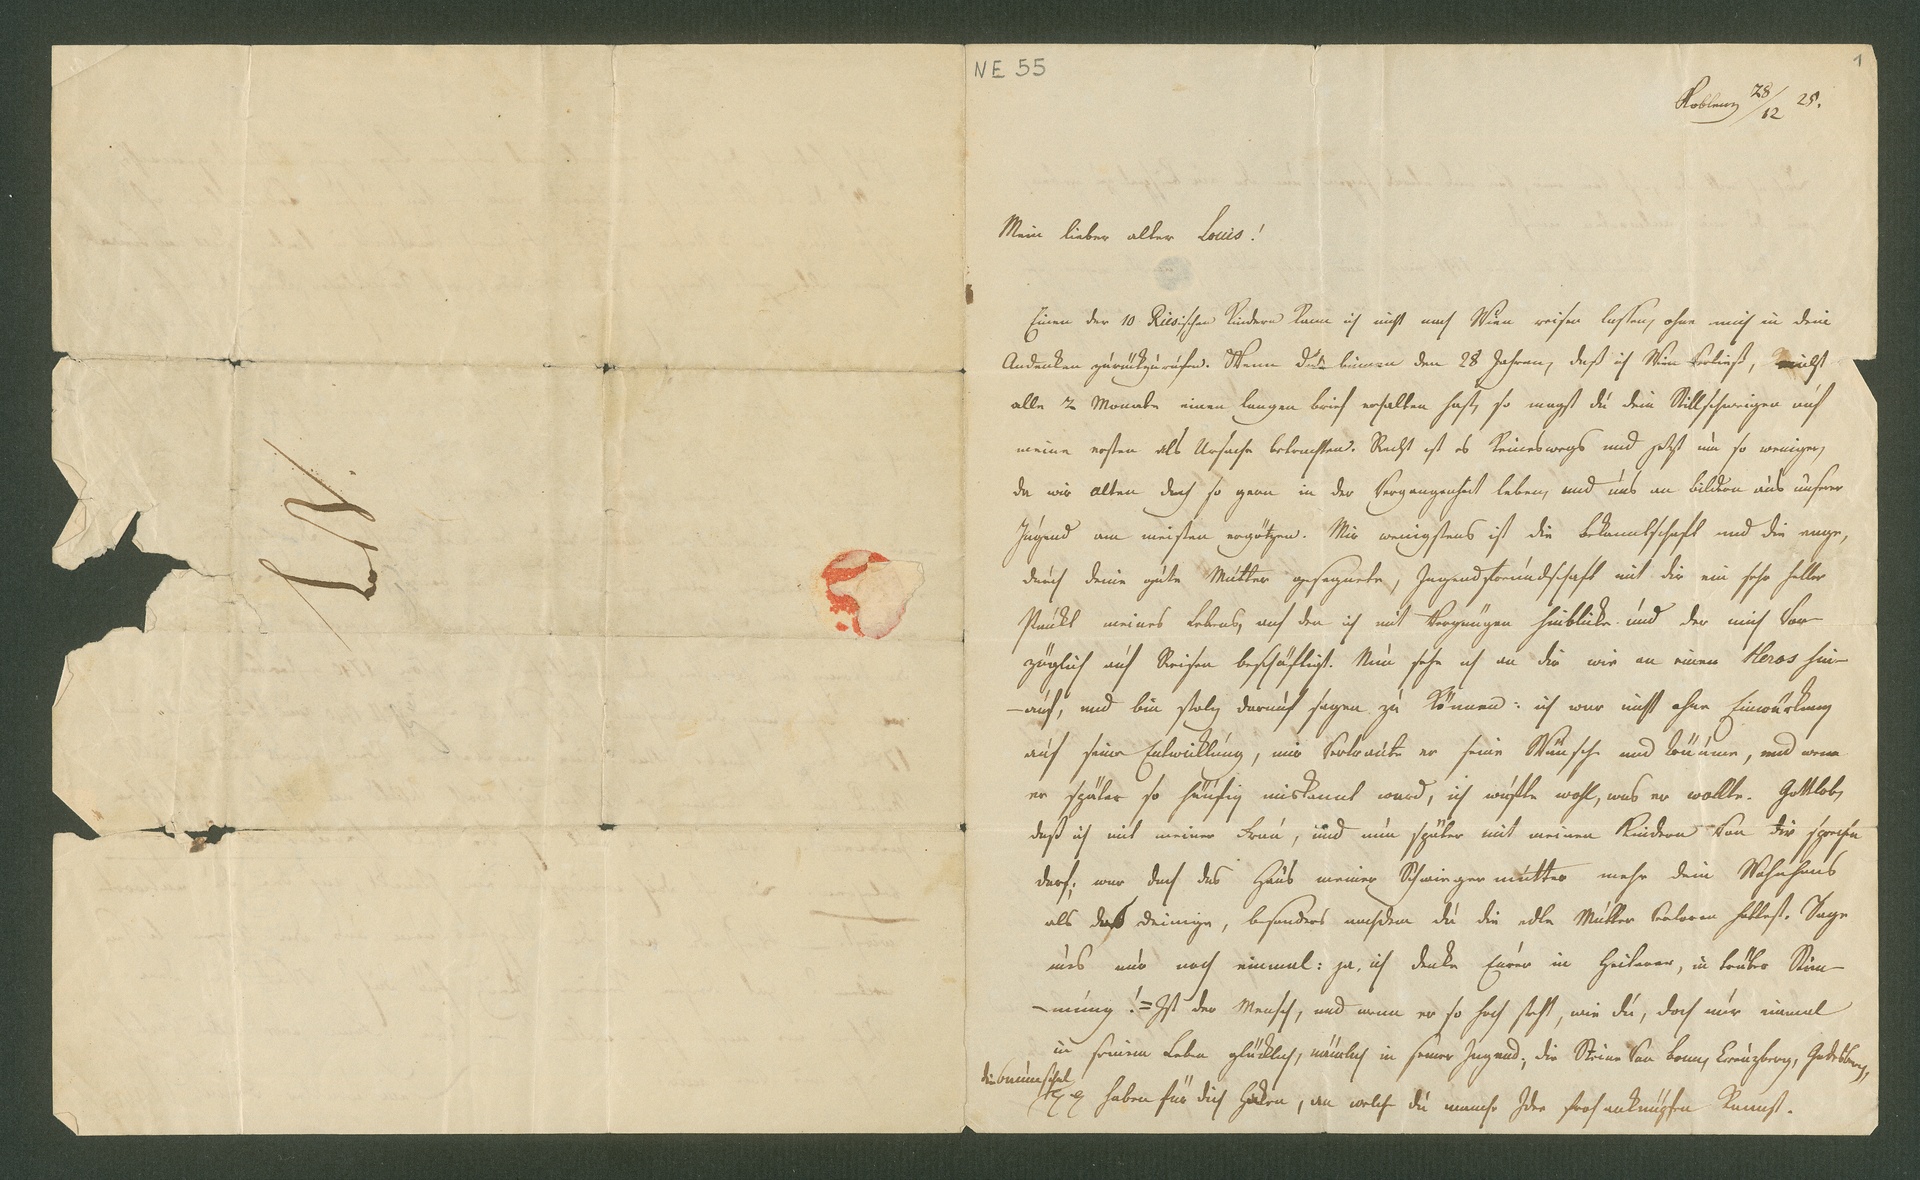 NE 55
1
Koblenz 28/12 25.
Mein lieber alter Louis!
Einen der 10 Riesischen Kindern kann ich nicht nach Wien reisen lassen, ohne mich in dein
Andenken zurückzurufen. Wenn du binnen den 28 Jahren, daß ich Wien verließ, nicht
alle 2 Monate einen langen brief erhalten hast, so magst du dein Stillschweigen auf
meine ersten als Ursache betrachten. Recht ist es keineswegs und jetzt um so weniger,
da wir alten doch so gern in der Vergangenheit leben, und uns an bildern aus unserer
Jugend am meisten ergötzen. Mir wenigstens ist die bekanntschaft und die enge,
durch deine gute Mutter gesegnete, Jugendfreundschaft mit dir ein sehr heller
Punkt meines Lebens, auf den ich mit Vergnügen hinblicke und der mich vor-
züglich auf Reisen beschäftigt. Nun sehe ich an dir wie an einen Heros hin-
-auf, und bin stolz darauf sagen zu können: ich war nicht ohne Einwürkung
auf seine Entwicklung, mir vertraute er seine Wünsche und träume, und wenn
er später so häufig miskannt ward, ich wußte wohl, was er wollte. Gottlob,
daß ich mit meiner Frau, und nun später mit meinen Kindern von dir sprechen
darf; war doch das Haus meiner Schwiegermutter mehr dein Wohnhaus
als das deinige, besonders nachdem du die edle Mutter verloren hattest. Sage
uns nur noch einmal: ja, ich denke Eurer in heiterer, in trüber Stim-
-mung! = Ist der Mensch, und wenn er so hoch steht, wie du, doch nur einmal
in seinem Leben glücklich, nämlich in seiner Jugend; die Steine von bonn, Kreuzberg, Godesberg,
die baumschul haben für dich Haken, an welche du manche Idee froh anknüpfen kannst.